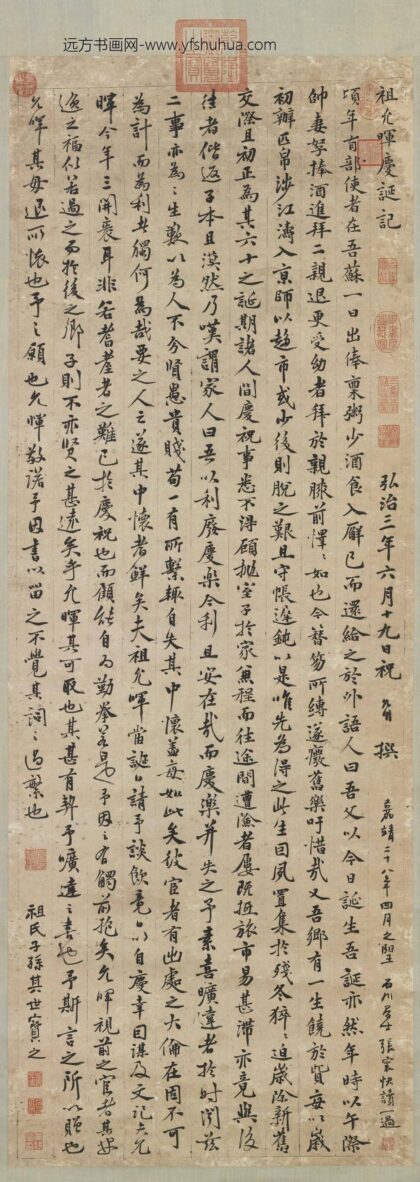 远方书画网-www.yfshuhua.com
祖允暉慶誕記
弘治三年六月十九日祝 撰
嘉靖二十八年四月之望 石川 張寰快讀一過
頃年有部使者在吾蘇一日出俸稟粥少酒食入廨已而還給之於外語人曰吾父以今日誕生吾誕亦然年時以午際
帥妻孥捧酒進拜二親退更受幼者拜於親膝前懌懌如也今替笏所縛遂廢舊樂吁惜哉又吾鄉有一生饒於貲每以歲
初辦匹帛涉江濤入京師以趨市或少後則脫之艱且守帳遲鈍以是唯先為得之此生因夙置集於殘冬猝猝迫歲除新舊
交際且初正為其六十之誕期諸人間慶祝事悉不得顧拋室子於家兼程而往途間遭險者屢既抵旅市易甚滯亦竟與後
往者偕返子本且漠然乃嘆謂家人曰吾以利廢慶樂今利且安在哉而慶樂并失之予素喜曠達者於時聞茲
二事亦為之生歎以為人不分賢愚貴賤苟一有所繫輒自失其中懷蓋每如此矣彼官者有出處之大倫在固不可
為計而為利者獨何為哉要之人之遂其中懷者鮮矣夫祖允暉當誕日請予談飲竟日以自慶幸因謀及文記之允
暉今年三開袠耳非若耆耋者之難已於慶祝也而顧能自為勤拳若是予因之有觸前抱矣允暉視前之官者其好
適之福似若過之而於後之鄉子則不亦賢之甚遠矣乎允暉其可取也其甚有契予曠達之素也予斯言之所以贈也
允暉其毋退所懷也予之願也允暉敬諾予因書以留之不覺其詞之過繁也
祖氏子孫其世寶之